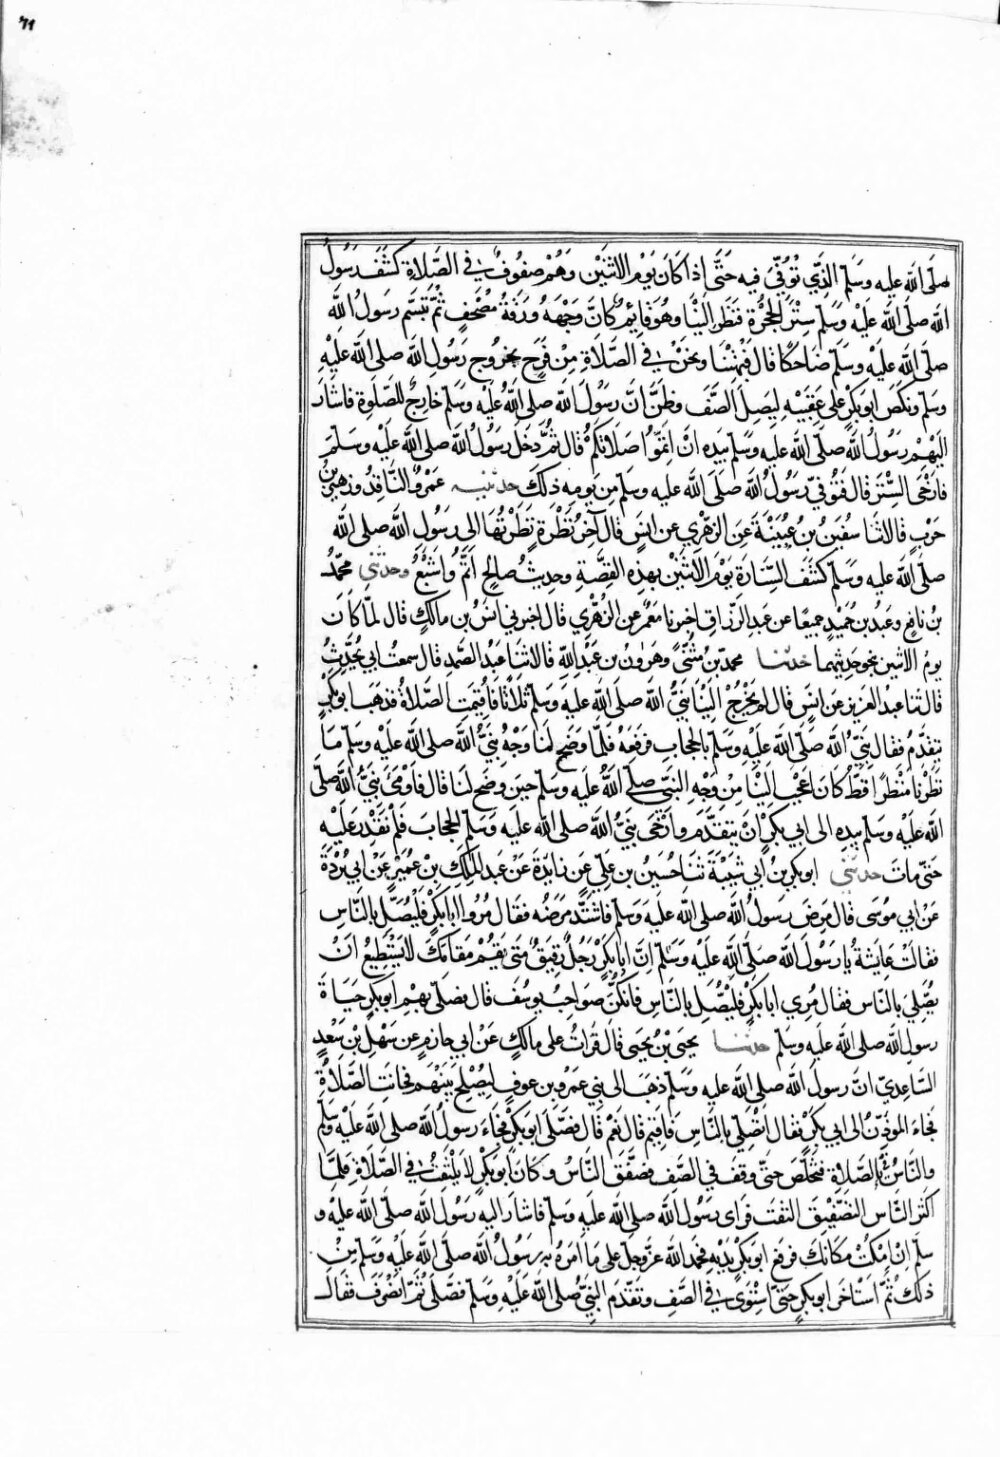 ٧١
صلى الله عليه وسلم الذي توفي فيه حتى اذا كان يوم الاثنين وهم صفوف في الصلاة كشف رسول
الله صلى الله عليه وسلم ستر الحجرة فنظر الينا وهو قائم كان وجهه ورقة مصحف ثم تبسم رسول الله
صلى الله عليه وسلم ضاحكا قال فبهتنا ونحن في الصلاة من فرح بخروج رسول الله صلى الله عليه
وسلم ونكص ابو بكر على عقبيه ليصل الصف وظن ان رسول الله صلى الله عليه وسلم خارج للصلوة فاشار
اليهم رسول الله صلى الله عليه وسلم بيده ان اتموا صلاتكم قال ثم دخل رسول الله صلى الله عليه وسلم
فارخى الستر قال فتوفي رسول الله صلى الله عليه وسلم من يومه ذلك حدثنيه عمرو الناقد وزهير بن
حرب قالا ثنا سفين بن عيينة عن الزهري عن انس قال آخر نظرة نظرتها الى رسول الله صلى الله
صلى الله عليه وسلم كشف الستارة يوم الاثنين بهذه القصة وحديث صالح اتم واشبع وحدثني محمد
بن نافع وعبد بن حميد جميعا عن عبد الرزاق اخبرنا معمر عن الزهري قال اخبرني انس بن مالك قال لما كان
يوم الاثنين بنحو حديثهما حدثنا محمد بن مثنى وهرون بن عبد الله قالا ثنا عبد الصمد قال سمعت ابي يحدث
قال ثنا عبد العزيز عن انس قال لم يخرج الينا نبي الله صلى الله عليه وسلم ثلاثا فاقيمت الصلاة فذهب ابو بكر
يتقدم فقال نبي الله صلى الله عليه وسلم بالحجاب فرفعه فلما وضح لنا وجه نبي الله صلى الله عليه وسلم ما
نظرنا منظرا قط كان اعجب الينا من وجه النبي صلى الله عليه وسلم حين وضح لنا قال فاومئ نبي الله صلى
الله عليه وسلم بيده الى ابي بكر ان يتقدم وارخى نبي الله صلى الله عليه وسلم الحجاب فلم نقدر عليه
حتى مات حدثني ابو بكر بن ابي شيبة ثنا حسين بن علي عن زايدة عن عبد الملك بن عمير عن ابي بردة
عن ابي موسى قال مرض رسول الله صلى الله عليه وسلم فاشتد مرضه فقال مروا ابا بكر فليصل بالناس
فقالت عايشة يا رسول الله صلى الله عليه وسلم ان ابا بكر رجل رقيق متى يقم مقامك لا يستطيع ان
يصلي بالناس فقال مري ابا بكر فليصل بالناس فانكن صواحب يوسف قال فصلى بهم ابو بكر حياة
رسول الله صلى الله عليه وسلم حدثنا يحيى بن يحيى قال قرات على مالك عن ابي حازم عن سهل بن سعد
الساعدي ان رسول الله صلى الله عليه وسلم ذهب الى بني عمرو بن عوف ليصلح بينهم فحانت الصلاة
فجاء الموذن الى ابي بكر فقال اتصلي بالناس فاقيم قال نعم قال فصلى ابو بكر فجاء رسول الله صلى الله عليه وسلم
والناس في الصلاة فتخلص حتى وقف في الصف فصفق الناس وكان ابو بكر لا يلتفت في الصلاة فلما
اكثر الناس التصفيق التفت فراى رسول الله صلى الله عليه وسلم فاشار اليه رسول الله صلى الله عليه و
سلم ان امكث مكانك فرفع ابو بكر يديه فحمد الله عز وجل على ما امره به رسول الله صلى الله عليه وسلم من
ذلك ثم استاخر ابو بكر حتى استوى في الصف وتقدم النبي صلى الله عليه وسلم فصلى ثم انصرف فقال